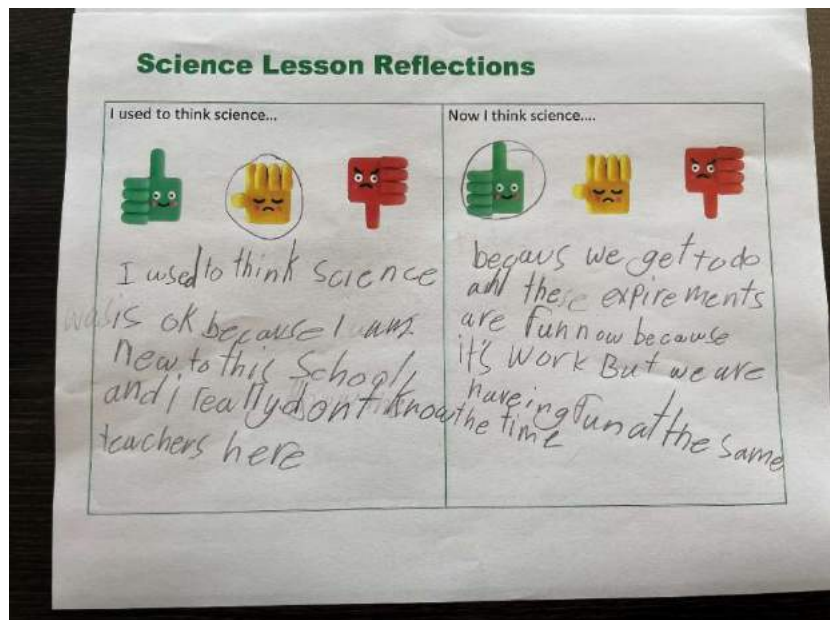 Science Lesson Reflections
I used to think science...
I used to think science
was is ok because I am
new to this School,
and i really dont know the
teachers here
Now I think science....
becaus we get to do
and these expirements
are fun now because
it's work But we are
haveing fun at the same
time